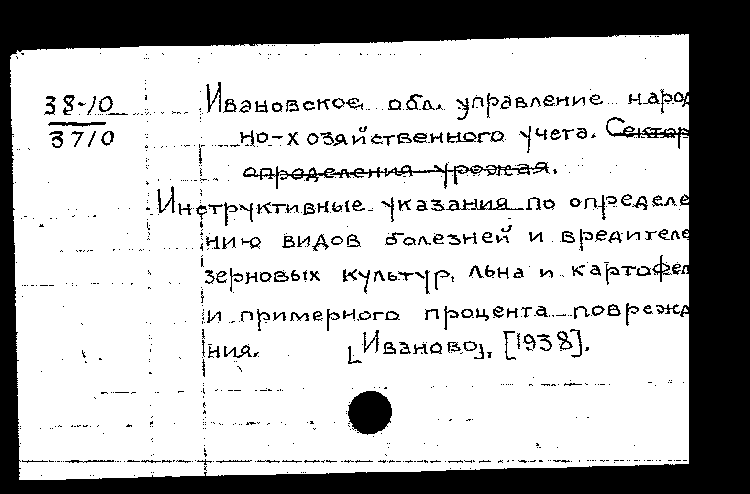 38-10
3710
Ивановское обл. управление народ
но-хозяйственного учета. Сектор
определения урожая.
Инструктивные указания по определе
нию видов болезней и вредителе
зерновых культур, льна и картофел
и примерного процента поврежд
ния. [Иваново], [1938].